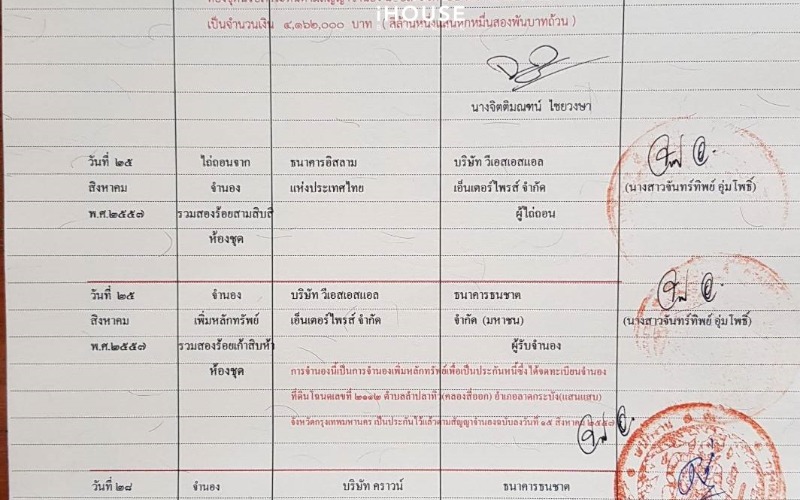 iHOUSE
เป็นจำนวนเงิน ๔,๑๖๒,๐๐๐ บาท ( สี่ล้านหนึ่งแสนหกหมื่นสองพันบาทถ้วน )
นางจิตติมณฑน์ ไชยวงษา
วันที่ ๒๕ ไถ่ถอนจาก ธนาคารอิสลาม บริษัท วีเอสเอสแอล
สิงหาคม จำนอง แห่งประเทศไทย เอ็นเตอร์ไพรส์ จำกัด (นางสาวจันทร์ทิพย์ อุ่มโพธิ์)
พ.ศ.๒๕๕๗ รวมสองร้อยสามสิบสี่ ผู้ไถ่ถอน
ห้องชุด
วันที่ ๒๕ จำนอง บริษัท วีเอสเอสแอล ธนาคารธนชาต
สิงหาคม เพิ่มหลักทรัพย์ เอ็นเตอร์ไพรส์ จำกัด จำกัด (มหาชน) (นางสาวจันทร์ทิพย์ อุ่มโพธิ์)
พ.ศ.๒๕๕๗ รวมสองร้อยเก้าสิบห้า ผู้รับจำนอง
ห้องชุด การจำนองนี้เป็นการจำนองเพิ่มหลักทรัพย์เพื่อเป็นประกันหนี้ซึ่งได้จดทะเบียนจำนอง
ที่ดินโฉนดเลขที่ ตำบลลำปลาทิว(คลองสี่ออก) อำเภอลาดกระบัง(แสนแสบ)
จังหวัดกรุงเทพมหานคร เป็นประกันไว้แล้วตามสัญญาจำนองฉบับลงวันที่ ๑๕ สิงหาคม ๒๕๕๗
วันที่ ๒๘ จำนอง บริษัท คราวน์ ธนาคารธนชาต